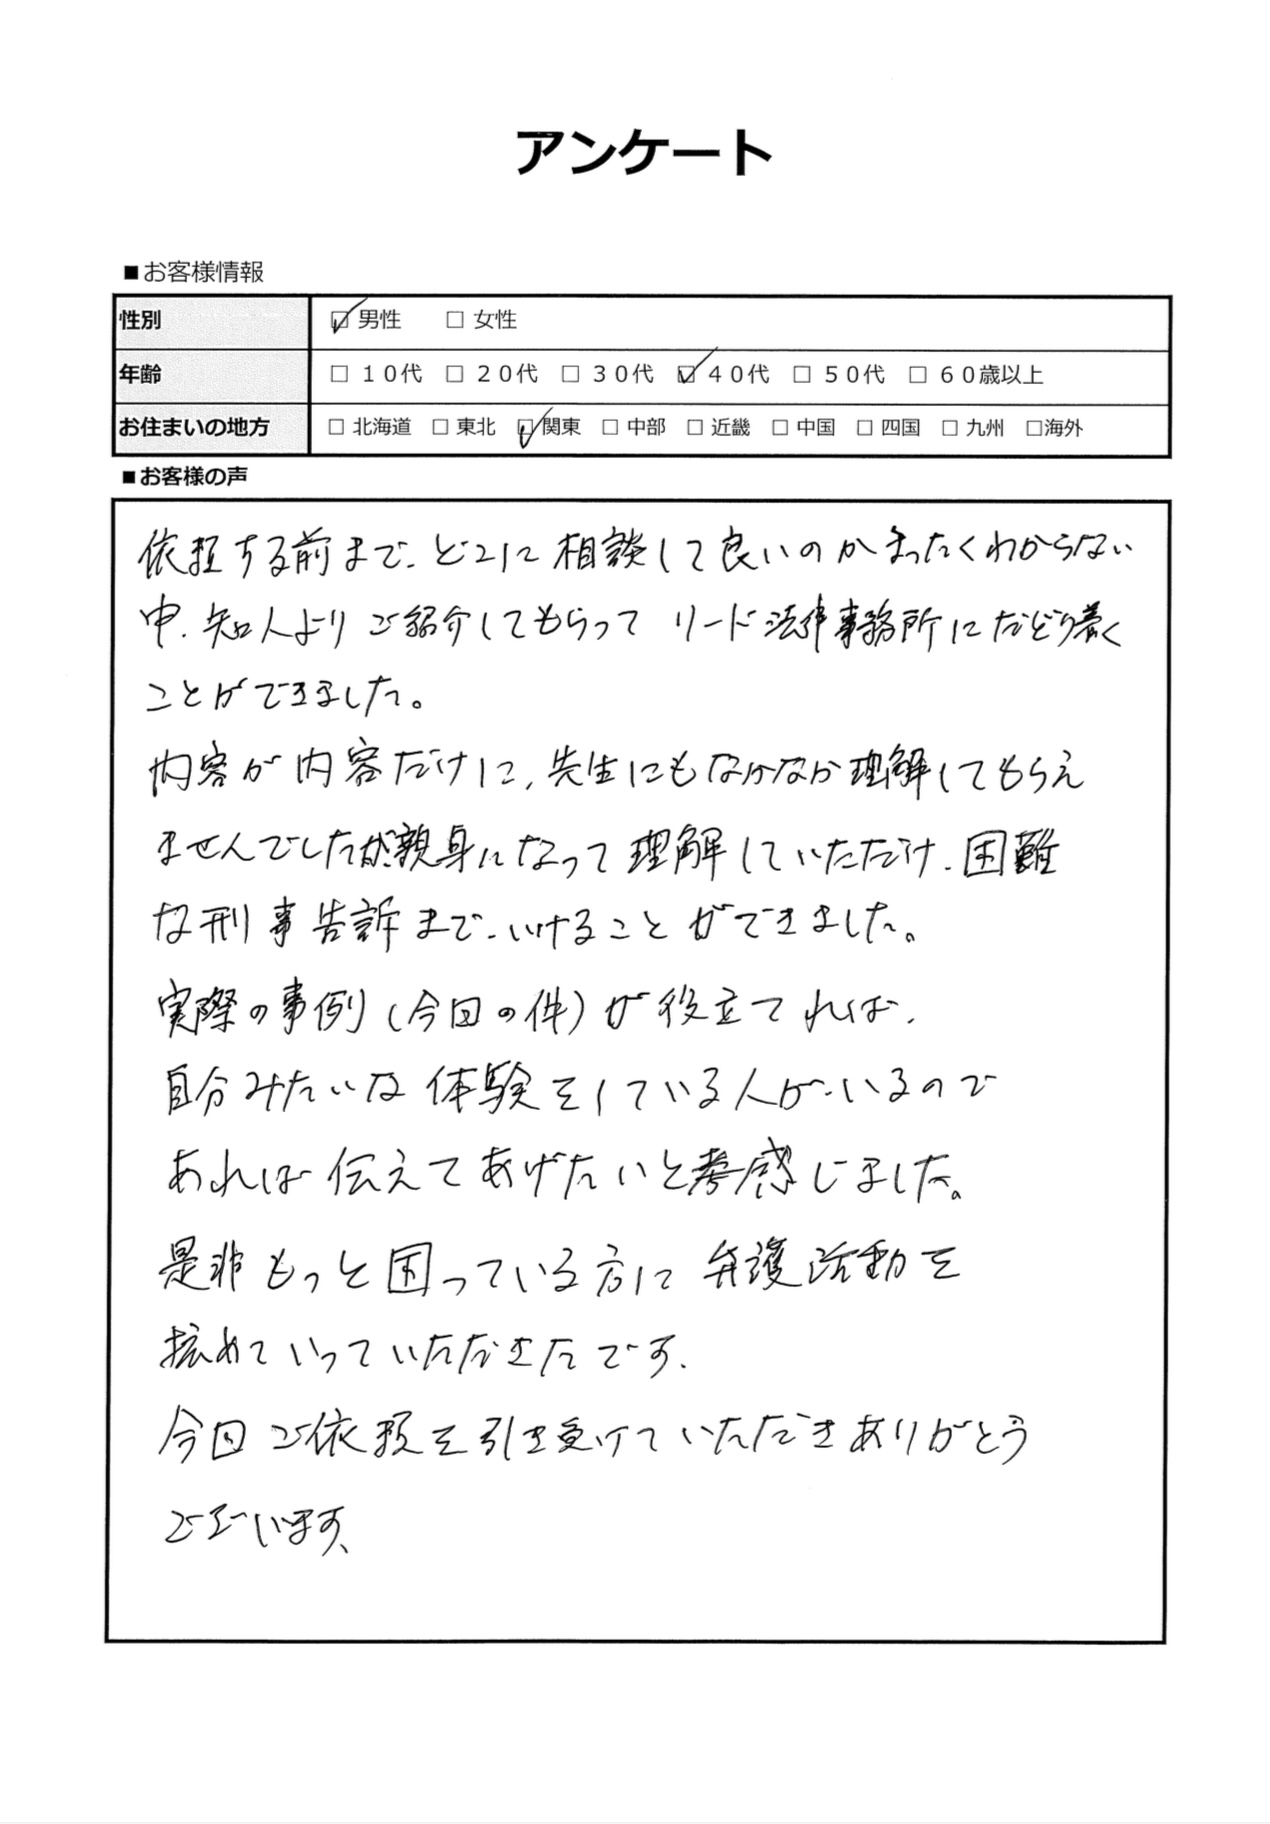 アンケート
■お客様情報
性別 ☑ 男性 □ 女性
年齢 □ 10代 □ 20代 □ 30代 ☑ 40代 □ 50代 □ 60歳以上
お住まいの地方 □ 北海道 □ 東北 ☑ 関東 □ 中部 □ 近畿 □ 中国 □ 四国 □ 九州 □海外
■お客様の声
依頼する前まで、どこに相談して良いのかまったくわからない
中、知人よりご紹介してもらって リード法律事務所にたどり着く
ことができました。
内容が内容だけに、先生にもなかなか理解してもらえ
ませんでしたが親身になって理解していただけ、困難
な刑事告訴まで、いけることができました。
実際の事例(今回の件)が役立てれば、
自分みたいな体験をしている人が、いるので
あれば伝えてあげたいと感じました。
是非もっと困っている方に弁護活動を
拡めていっていただきたです。
今回ご依頼を引き受けていただきありがとう
ございます、